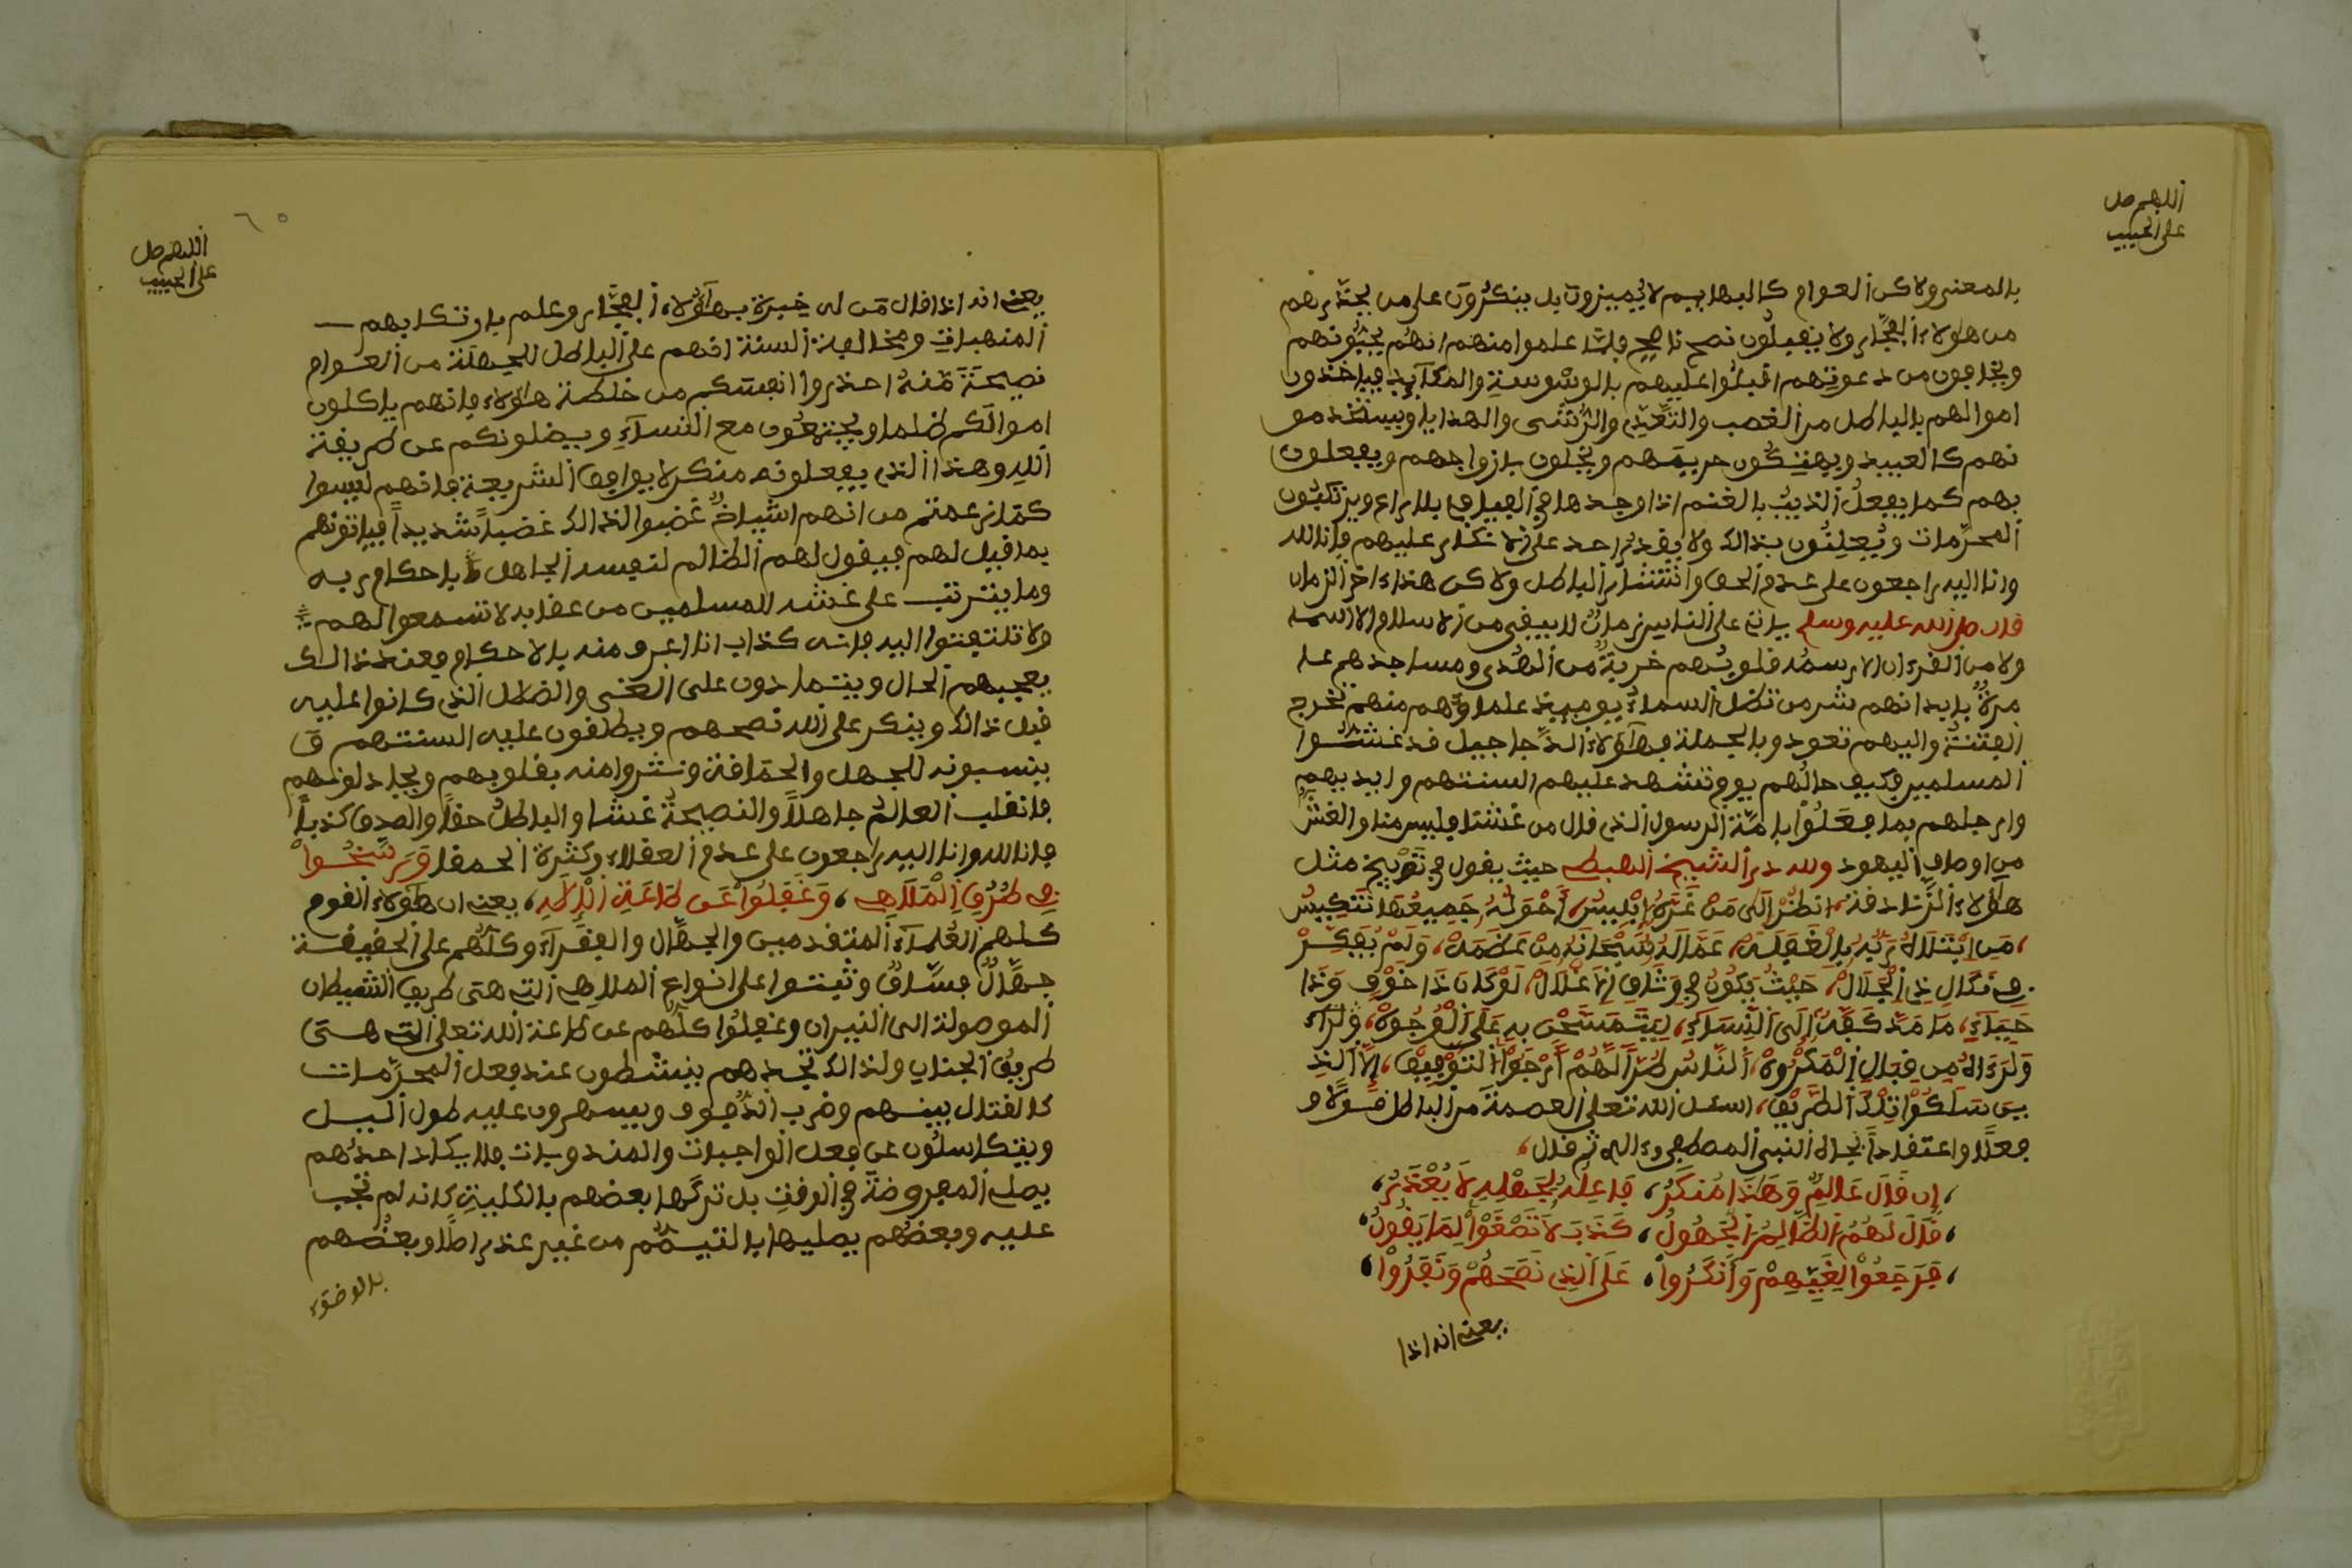 اللهم صل
على الحبيب
بالمعنى ولاكن العوام كالبهايم لا يميزون بل ينكرون على من يحذرهم
من هولاء الفجار ولا يقبلون نصح ناصح فلما علموا منهم انهم يحبونهم
ويخافون من دعوتهم اقبلوا عليهم بالوسوسة والمكايد فياخذون
اموالهم بالباطل من الغصب والتعدي والرشى والهدايا ويستخدمو
نهم كالعبيد ويهتكون حريمهم ويخلون بازواجهم ويفعلون
بهم كما يفعل الذيب بالغنم اذا وجدها في الفيافي بلا راع ويرتكبون
المحرمات ويعلنون بذالك ولا يقدر احد على الانكار عليهم فانا لله
وانا اليه راجعون على عدم الحق وانتشار الباطل ولاكن هذا ءاخر الزمان
قال صلى الله عليه وسلم ياتى على الناس زمان لا يبقى من الاسلام الا اسمه
ولا من القرءان الا رسمه قلوبهم خربة من الهدى ومساجدهم عا
مرة بابدانهم شر من تظل السماء يوميذ علماوهم منهم تخرج
الفتنة واليهم تعود وبالجملة فهاؤلاء الدجاجيل قد غشوا
المسلمين وكيف حالهم يوم تشهد عليهم السنتهم وايديهم
وارجلهم بما فعلوا بامة الرسول الذي قال من غشنا فليس منا والغش
من اوصاف اليهود ولله در الشيخ الهبطي حيث يقول في توبيخ مثل
هاؤلاء الزنادقة، انظر الى من غره ابليس، احواله جميعها تنكيس
، من ابتلاه ربه بالغفلة، عما له سبحانه من عظمة، ولم يفكر
في نكال ذي الجلال، حيث يكون في وثاق الاغلال، لو كان ذا خوف وذا
حياء، ما مد كفه الى النساء، ليتمسحن به على الوجوه،
من فعال المكروه، الناس طرا لهم ارجوا التوفيق، الا الذي
ين سلكوا تلك الطريق، اسئل الله تعالى العصمة من الباطل قولا و
فعلا واعتقادا بجاه النبي المصطفى وءاله ثم قال،
، ان قال عالم وهذا منكر، فاعله لجهله لا يعذر،
، قال لهم الظالم الجهول، كذب لا تصغوا لما يقول،
، فرجعوا لغيهم وانكروا، على الذي نصحهم ونفروا،
يعني انه اذا
٦٥
اللهم صل
على الحبيب
يعني انه اذا قال من له خبرة بهاؤلاء الفجار وعلم بارتكابهم
المنهيات ومخالفة السنة انهم على الباطل للجهلة من العوام
نصيحة منه احذروا انفسكم من خلطة هاؤلاء فانهم ياكلون
اموالكم ظلما ويجتمعون مع النساء ويضلونكم عن طريقة
الله وهذا الذي يفعلونه منكر لا يوافق الشريعة فانهم ليسوا
كما زعمتم من انهم اشياخ غضبوا لذالك غضبا شديدا فياتونهم
بما قيل لهم فيقول لهم الظالم لنفسه الجاهل باحكام ربه
وما يترتب على غشه للمسلمين من عقابه لا تسمعوا لهم
ولا تلتفتوا اليه فانه كذاب انا اعرف منه بالاحكام فعند ذالك
يعجبهم الحال ويتمادون على الغي والضلال الذي كانوا عليه
قبل ذالك وينكر على الله نصحهم ويطلقون عليه السنتهم و
ينسبونه للجهل والحماقة ونفروا منه بقلوبهم ويجادلونهم
فانقلب العالم جاهلا والنصيحة غشا والباطل حقا والصدق كذبا
فانا لله وانا اليه راجعون على عدم العقلاء وكثرة الحمقا ورسخوا
في طرق الملاهي، وغفلوا عن طاعة الاله، يعني ان هاؤلاء القوم
كلهم العلماء المتقدمين والجهال والفقراء وكلهم على الحقيقة
جهال فساق وثبتوا على انواع الملاهي التي هى طريق الشيطان
الموصولة الى النيران وغفلوا كلهم عن طاعة الله تعلى التي هى
طريق الجنان ولذالك تجدهم ينشطون عند فعل المحرمات
كالقتال بينهم وضرب الدفوف ويسهرون عليه طول اليل
ويتكاسلون عن فعل الواجبات والمندوبات فلا يكاد احدهم
يصلى المفروضة في الوقت بل تركها بعضهم بالكلية كانه لم تجب
عليه وبعضهم يصليها بالتيمم من غير عذر اصلا وبعضهم
بالوضوء